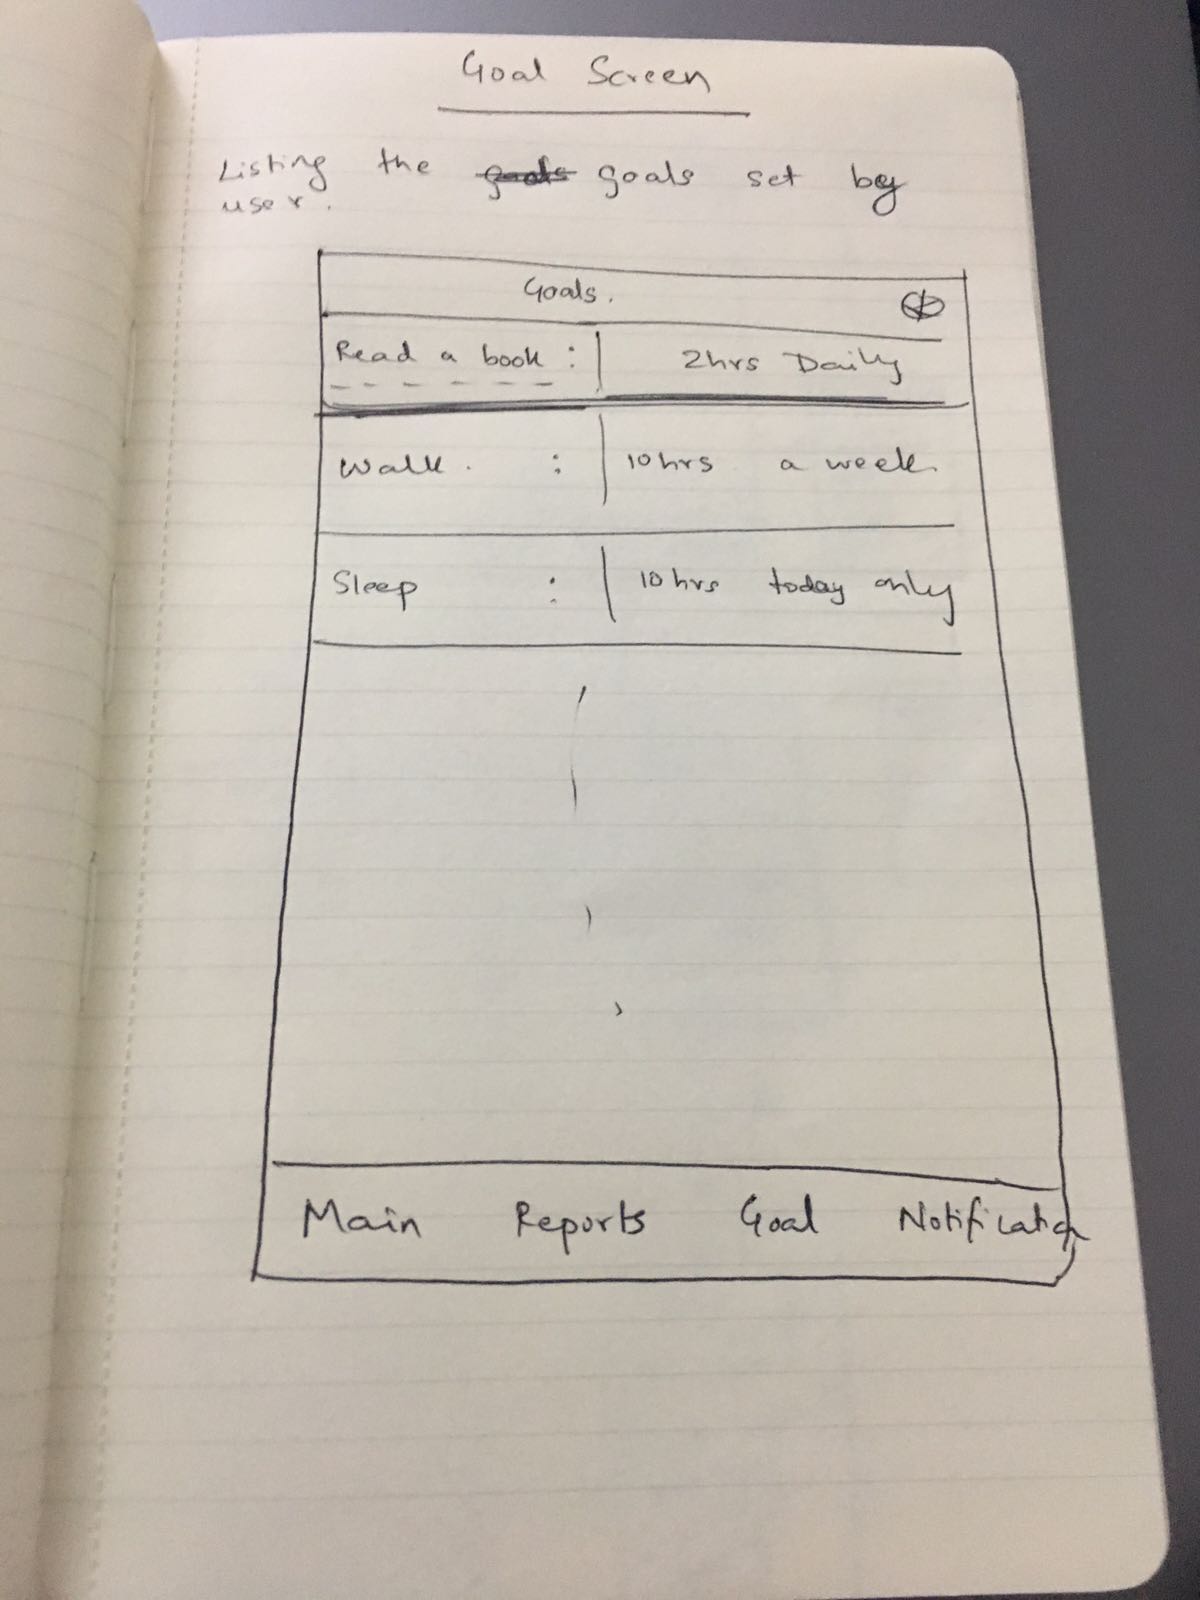 Goal Screen
Listing the goals set by
user.
Goals.
Read a book : 2hrs Daily
Walk. : 10 hrs a week.
Sleep : 10 hrs today only
Main Reports Goal Notification